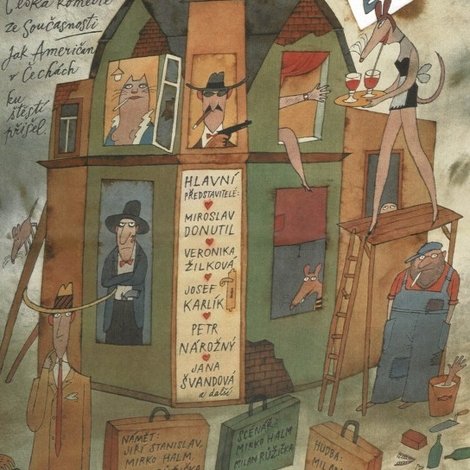 Česká komedie
ze Současnosti
Jak Američan
v Čechách
ku
štěstí
přišel.
HLAVNÍ
PŘEDSTAVITELÉ:
MIROSLAV
DONUTIL
VERONIKA
ŽILKOVÁ
JOSEF
KARLÍK
PETR
NÁROŽNÝ
JANA
ŠVANDOVÁ
a další
NÁMĚT:
JIŘÍ STANISLAV,
MIRKO HALM,
RŮŽIČKA
SCÉNÁŘ:
MIRKO HALM
MILAN RŮŽIČKA
HUDBA:
MILAN